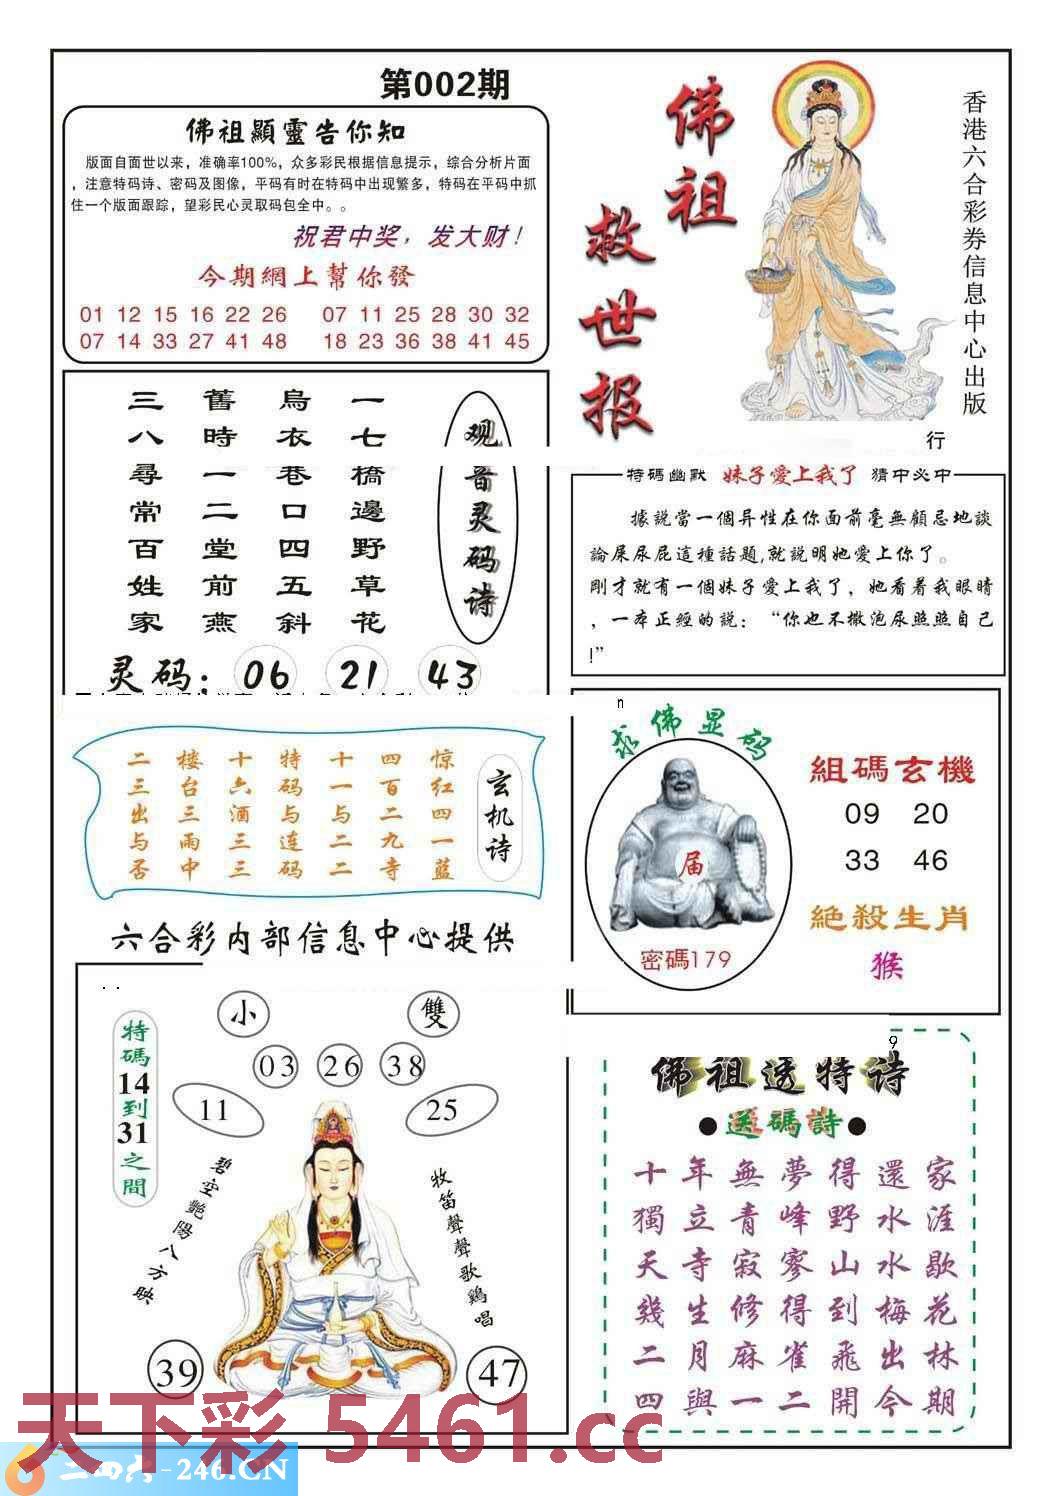 第002期
佛祖顯靈告你知
版面自面世以来，准确率100%，众多彩民根据信息提示，综合分析片面
，注意特码诗、密码及图像，平码有时在特码中出现繁多，特码在平码中抓
住一个版面跟踪，望彩民心灵取码包全中。。
祝君中奖，发大财！
今期網上幫你發
01 12 15 16 22 26 07 11 25 28 30 32
07 14 33 27 41 48 18 23 36 38 41 45
佛祖
救世报
香港六合彩券信息中心出版
行
观音灵码诗
一七橋邊野草花
烏衣巷口四五斜
舊時一二堂前燕
三八尋常百姓家
灵码：06 21 43
特碼幽默 妹子愛上我了 猜中必中
據説當一個异性在你面前毫無顧忌地談
論屎尿屁這種話題,就説明她愛上你了。
剛才就有一個妹子愛上我了，她看着我眼睛
，一本正經的説：“你也不撒泡尿照照自己
!”
n
玄机诗
惊红四一蓝
四百二九寺
十一与二二
特码与连码
十六酒三三
楼台三雨中
二三出与否
求佛显码
届
密碼179
組碼玄機
09 20
33 46
絕殺生肖
猴
六合彩内部信息中心提供
小 雙
03 26 38
11 25
特碼14到31之間
碧空艷陽八方映
牧笛聲聲歌鷄唱
39 47
9
佛祖透特诗
●送碼詩●
十年無夢得還家
獨立青峰野水涯
天寺寂寥山水歇
幾生修得到梅花
二月麻雀飛出林
四與一二開今期
天下彩 5461.cc
二四六-246.CN